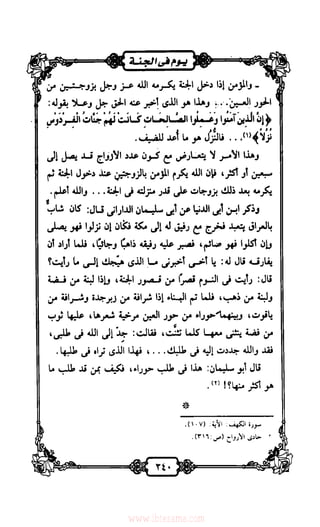 يوم في الجنة
- والمؤمن إذا دخل الجنة يكرمه الله عز وجل بزوجتين من
الحور العين... وهذا هو الذي أخبر عنه الحق جل وعلا بقوله:
﴿إِنَّ الَّذِينَ آمَنُوا وَعَمِلُوا الصَّالِحَاتِ كَانَتْ لَهُمْ جَنَّاتُ الْفِرْدَوْسِ
نُزُلًا﴾(١)... فالنُّزل هو ما يُعد للضيف.
وهذا الأمر لا يتعارض مع كون عدد الأزواج قد يصل إلى
سبعين أو أكثر، فإن الله يكرم المؤمن بالزوجتين عند دخول الجنة ثم
يكرمه بعد ذلك بزوجات على قدر منزلته في الجنة... والله أعلم.
وذكر ابن أبي الدنيا عن أبي سليمان الداراني قال: كان شابٌّ
بالعراق يتعبد فخرج مع رفيق له إلى مكة فكان إن نزلوا فهو يصلي
وإن أكلوا فهو صائم، فصبر عليه رفيقه ذاهبًا وجائيًا، فلما أراد أن
يفارقه قال له: يا أخي أخبرني ما الذي هيجك إلى ما رأيت؟
قال: رأيت في النوم قصرًا من قصور الجنة، وإذا لبنة من فضة
ولبنة من ذهب، فلما تم البناء إذا شرافة من زبرجد وشرافة من
ياقوت، وبينهما حوراء من حور العين مرخية شعرها، عليها ثوب
من فضة يتثنى معها كلما تثنت، فقالت: جِدَّ إلى الله في طلبي،
فقد والله جددت إليه في طلبك... فهذا الذي تراه في طلبها.
قال أبو سليمان: هذا في طلب حوراء، فكيف بمن قد طلب ما
هو أكثر منها؟!(٢)
*
سورة الكهف: الآية: (١٠٧).
حادي الأرواح (ص: ٣١٦).
٢٤٠
www.ibtesama.com